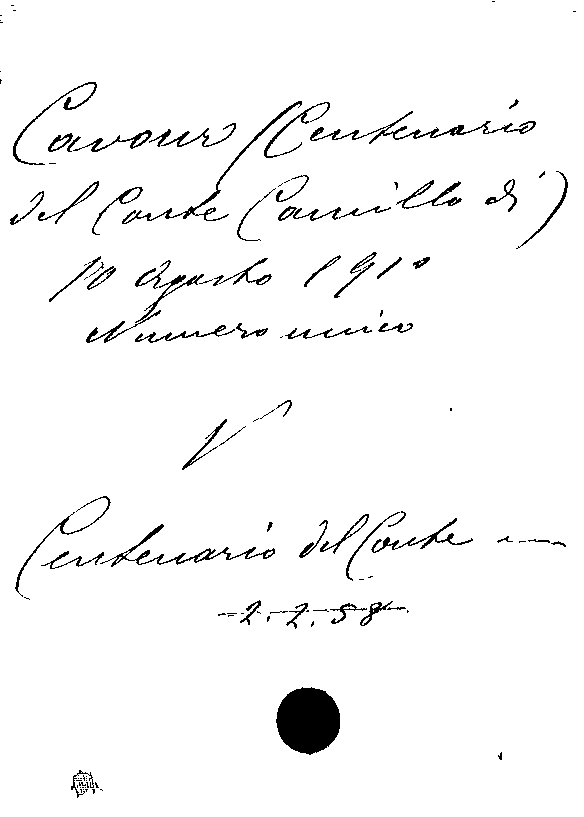 Cavour (Centenario
del Conte Camillo di)
10 Agosto 1910
Numero unico
V
Centenario del Conte ----
2.2.58